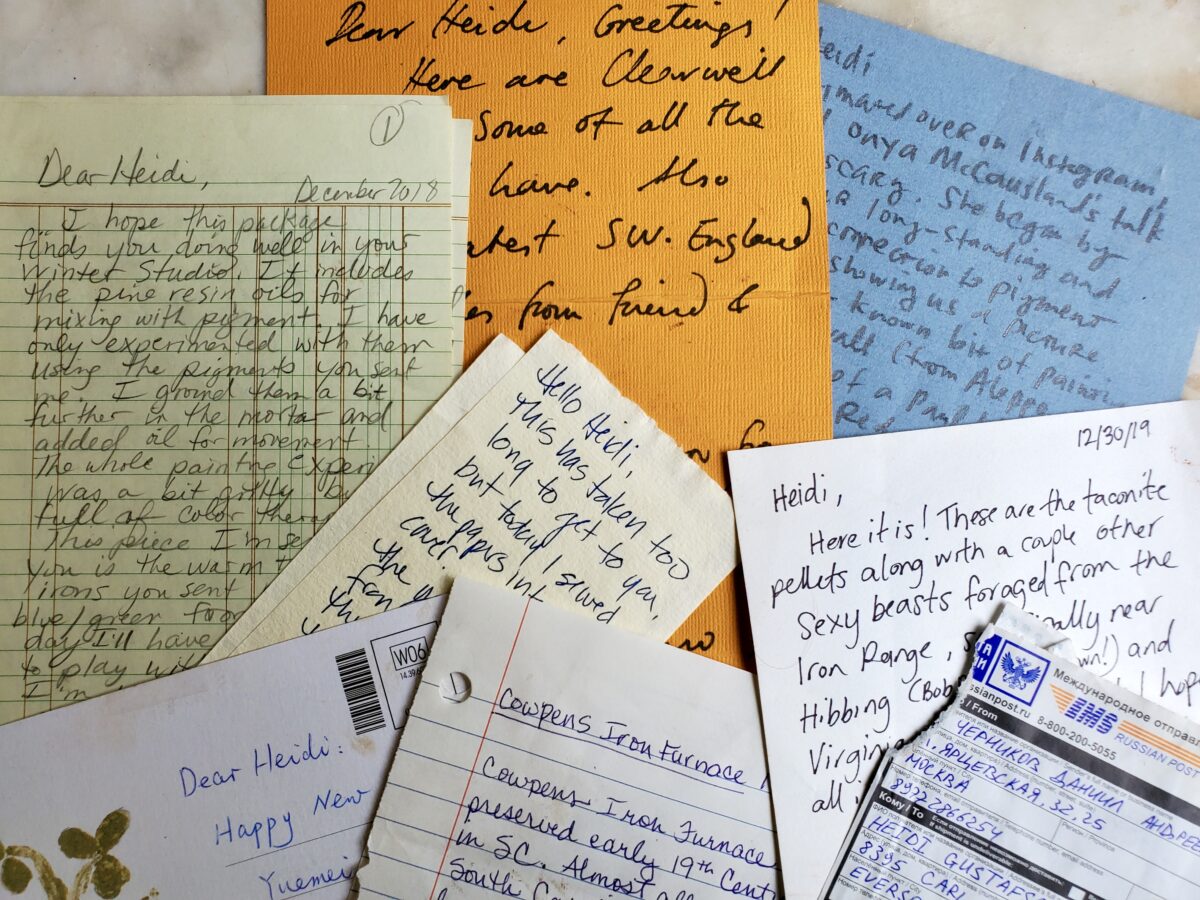 Dear Heidi, Greetings!
Here are Clearwell
Some of all the
have. Also
atest SW. England
es from friend &
Heidi
onya McCausland's talk
scary. She began by
a long-standing and
connection to pigment
showing us a picture
known bit of
(from Aleppo
of a
1
Dear Heidi,
December 2018
I hope this package
finds you doing well in your
Winter Studio. It includes
the pine resin oils for
mixing with pigment. I have
only experimented with them
using the pigments you sent
me. I ground them a bit
further in the mortar and
added oil for movement.
The whole painting experi
was a bit gritty bu
full of color thera
This piece I'm se
you is the warm t
irons you sent
blue/green
day I'll have
to play wit
I'm
Hello Heidi,
This has taken too
long to get to you,
but today I sewed
the papers int
cover.
the
12/30/19
Heidi,
Here it is! These are the taconite
pellets along with a couple other
sexy beasts foraged from the
Iron Range, nally near
Hibbing (Bob own!) and
Virginia I hope
all
W06
Dear Heidi:
Happy New
Yuemei
Cowpens Iron Furnace
Cowpens Iron Furnace
preserved early 19th Cent
in SC. Almost all
South Ca
Международное отправл
EMS
RUSSIAN POST
ssianpost.ru 8-800-200-5055
/ From
ЧЕРНИКОВ ДАНИИЛ АНДРЕЕ
ЯРЦЕВСКАЯ, 32, 25
МОСКВА
Кому / To
HEIDI GUSTAFS
8395 CARL
EVERSO